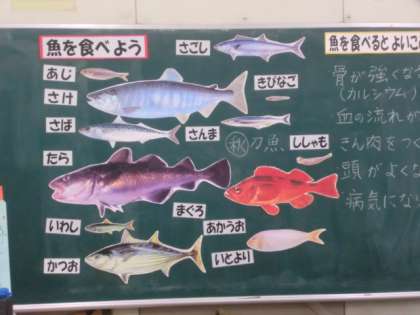 魚を食べよう
さごし
魚を食べるとよいこ
あじ
きびなご
さけ
さば
さんま
秋刀魚
ししゃも
たら
まぐろ
あかうお
いわし
いとより
かつお
骨が強くな
(カルシウム)
血の流れが
きん肉をつく
頭がよくな
病気にな